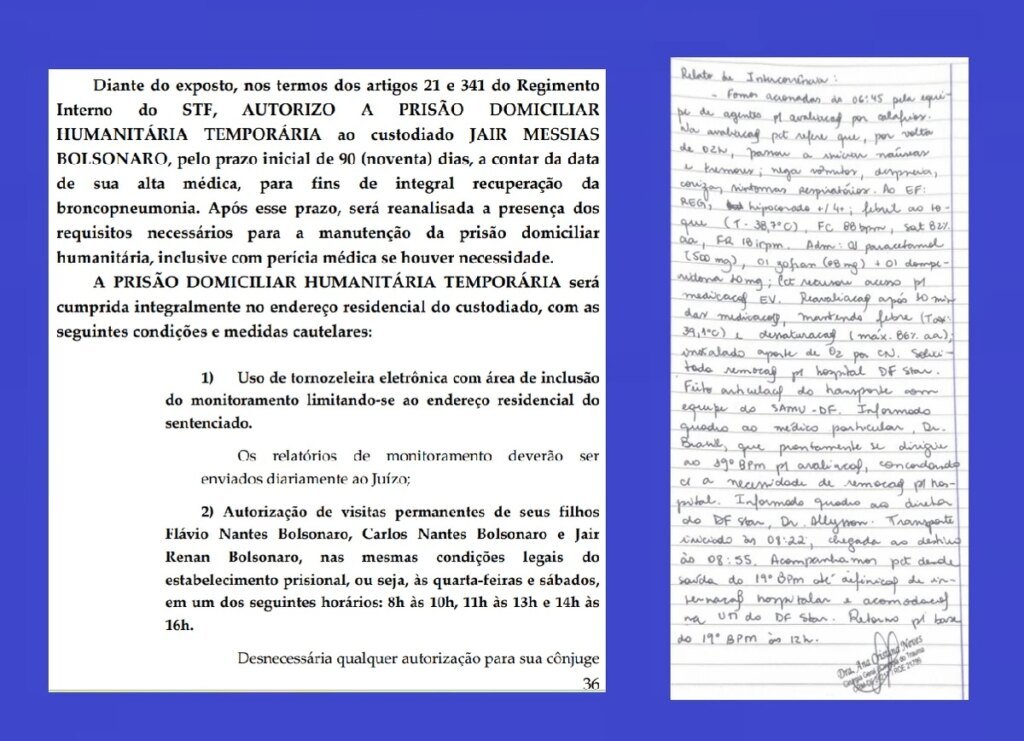 Diante do exposto, nos termos dos artigos 21 e 341 do Regimento
Interno do STF, AUTORIZO A PRISÃO DOMICILIAR
HUMANITÁRIA TEMPORÁRIA ao custodiado JAIR MESSIAS
BOLSONARO, pelo prazo inicial de 90 (noventa) dias, a contar da data
de sua alta médica, para fins de integral recuperação da
broncopneumonia. Após esse prazo, será reanalisada a presença dos
requisitos necessários para a manutenção da prisão domiciliar
humanitária, inclusive com perícia médica se houver necessidade.
A PRISÃO DOMICILIAR HUMANITÁRIA TEMPORÁRIA será
cumprida integralmente no endereço residencial do custodiado, com as
seguintes condições e medidas cautelares:
1) Uso de tornozeleira eletrônica com área de inclusão
do monitoramento limitando-se ao endereço residencial do
sentenciado.
Os relatórios de monitoramento deverão ser
enviados diariamente ao Juízo;
2) Autorização de visitas permanentes de seus filhos
Flávio Nantes Bolsonaro, Carlos Nantes Bolsonaro e Jair
Renan Bolsonaro, nas mesmas condições legais do
estabelecimento prisional, ou seja, às quarta-feiras e sábados,
em um dos seguintes horários: 8h às 10h, 11h às 13h e 14h às
16h.
Desnecessária qualquer autorização para sua cônjuge
36
Relato de Intercorrência:
- Fomos acionados às 06:45 pela equi-
pe de agentes p/ avaliaçaõ por calafrios.
Na avaliaçaõ pct refere que, por volta
de 02h, passou a iniciar náuseas
e tremores; nega vômitos, dispneia,
coriza, sintomas respiratórios. Ao EF:
REG, hipocorado +/4+; febril ao to-
que (T - 38,7°C), FC 88 bpm, Sat 82%
aa, FR 18 irpm. Adm: 01 paracetamol
(500 mg), 01 zofran (08 mg) + 01 dompe-
ridona 10mg; Pct recusou acesso p/
medicaçaõ EV. Reavaliaçaõ após 10 min
das medicações, mantendo febre (Tax:
39,1°C) e dessaturaçaõ (máx. 86% aa);
instalado aporte de O2 por CN. Solici-
tada remoçaõ p/ hospital DF Star.
Feito articulaçaõ do transporte com
equipe do SAMU-DF. Informado
quadro ao médico particular, Dr.
Brasil, que prontamente se dirigiu
ao 19º BPM p/ avaliaçaõ, concordando
c/ a necessidade de remoçaõ p/ hos-
pital. Informado quadro ao diretor
do DF Star, Dr. Allysson. Transporte
iniciado às 08:22, chegada ao destino
às 08:55. Acompanhamos pct desde
saída do 19º BPM até definiçaõ de in-
ternaçaõ hospitalar e acomodaçaõ
na UTI do DF Star. Retorno p/ base
do 19º BPM às 12h.
Dra. Ana Cristina Neves
Cirurgia Geral / Cirurgia do Trauma